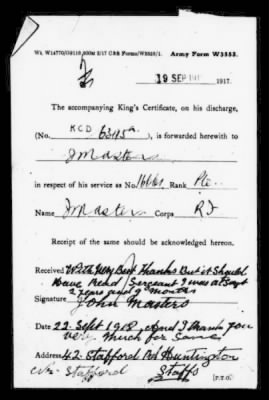 Wt. W14770/ 500M 2/17 C&R Forms/W3553/1. Army Form W3553.
19 SEP 191 1917.
The accompanying King's Certificate, on his discharge,
(No. KCD 63115A), is forwarded herewith to
J Masters
in respect of his service as No. Rank Pte.
Name J Masters Corps
Receipt of the same should be acknowledged hereon.
Received With Very Best Thanks But it Should
Have Read Sergeant I was a Sergt
2 years and 9 months
Signature John Masters
Date 22 Sept 1918, And I thank you
very much for same
Address 42 Stafford Rd Huntington
Nr. Stafford Staffs
[P.T.O.]